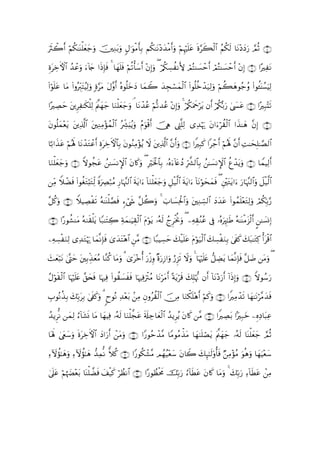 ثُمَّ رَدَدْنَا لَكُمُ الْكَرَّةَ عَلَيْهِمْ وَأَمْدَدْنَاكُم بِأَمْوَالٍ وَبَنِينَ وَجَعَلْنَاكُمْ أَكْثَرَ
نَفِيرًا ۝ إِنْ أَحْسَنتُمْ أَحْسَنتُمْ لِأَنفُسِكُمْ ۖ وَإِنْ أَسَأْتُمْ فَلَهَا ۚ فَإِذَا جَاءَ وَعْدُ الْآخِرَةِ
لِيَسُوءُوا وُجُوهَكُمْ وَلِيَدْخُلُوا الْمَسْجِدَ كَمَا دَخَلُوهُ أَوَّلَ مَرَّةٍ وَلِيُتَبِّرُوا مَا عَلَوْا
تَتْبِيرًا ۝ عَسَىٰ رَبُّكُمْ أَن يَرْحَمَكُمْ ۚ وَإِنْ عُدتُّمْ عُدْنَا ۘ وَجَعَلْنَا جَهَنَّمَ لِلْكَافِرِينَ حَصِيرًا
۝ إِنَّ هَٰذَا الْقُرْآنَ يَهْدِي لِلَّتِي هِيَ أَقْوَمُ وَيُبَشِّرُ الْمُؤْمِنِينَ الَّذِينَ يَعْمَلُونَ
الصَّالِحَاتِ أَنَّ لَهُمْ أَجْرًا كَبِيرًا ۝ وَأَنَّ الَّذِينَ لَا يُؤْمِنُونَ بِالْآخِرَةِ أَعْتَدْنَا لَهُمْ عَذَابًا
أَلِيمًا ۝ وَيَدْعُ الْإِنسَانُ بِالشَّرِّ دُعَاءَهُ بِالْخَيْرِ ۖ وَكَانَ الْإِنسَانُ عَجُولًا ۝ وَجَعَلْنَا
اللَّيْلَ وَالنَّهَارَ آيَتَيْنِ ۖ فَمَحَوْنَا آيَةَ اللَّيْلِ وَجَعَلْنَا آيَةَ النَّهَارِ مُبْصِرَةً لِّتَبْتَغُوا فَضْلًا مِّن
رَّبِّكُمْ وَلِتَعْلَمُوا عَدَدَ السِّنِينَ وَالْحِسَابَ ۚ وَكُلَّ شَيْءٍ فَصَّلْنَاهُ تَفْصِيلًا ۝ وَكُلَّ
إِنسَانٍ أَلْزَمْنَاهُ طَائِرَهُ فِي عُنُقِهِ ۖ وَنُخْرِجُ لَهُ يَوْمَ الْقِيَامَةِ كِتَابًا يَلْقَاهُ مَنشُورًا ۝
اقْرَأْ كِتَابَكَ كَفَىٰ بِنَفْسِكَ الْيَوْمَ عَلَيْكَ حَسِيبًا ۝ مَّنِ اهْتَدَىٰ فَإِنَّمَا يَهْتَدِي لِنَفْسِهِ ۖ
وَمَن ضَلَّ فَإِنَّمَا يَضِلُّ عَلَيْهَا ۚ وَلَا تَزِرُ وَازِرَةٌ وِزْرَ أُخْرَىٰ ۗ وَمَا كُنَّا مُعَذِّبِينَ حَتَّىٰ نَبْعَثَ
رَسُولًا ۝ وَإِذَا أَرَدْنَا أَن نُّهْلِكَ قَرْيَةً أَمَرْنَا مُتْرَفِيهَا فَفَسَقُوا فِيهَا فَحَقَّ عَلَيْهَا الْقَوْلُ
فَدَمَّرْنَاهَا تَدْمِيرًا ۝ وَكَمْ أَهْلَكْنَا مِنَ الْقُرُونِ مِن بَعْدِ نُوحٍ ۗ وَكَفَىٰ بِرَبِّكَ بِذُنُوبِ
عِبَادِهِ خَبِيرًا بَصِيرًا ۝ مَّن كَانَ يُرِيدُ الْعَاجِلَةَ عَجَّلْنَا لَهُ فِيهَا مَا نَشَاءُ لِمَن نُّرِيدُ
ثُمَّ جَعَلْنَا لَهُ جَهَنَّمَ يَصْلَاهَا مَذْمُومًا مَّدْحُورًا ۝ وَمَنْ أَرَادَ الْآخِرَةَ وَسَعَىٰ لَهَا
سَعْيَهَا وَهُوَ مُؤْمِنٌ فَأُولَٰئِكَ كَانَ سَعْيُهُم مَّشْكُورًا ۝ كُلًّا نُّمِدُّ هَٰؤُلَاءِ وَهَٰؤُلَاءِ
مِنْ عَطَاءِ رَبِّكَ ۚ وَمَا كَانَ عَطَاءُ رَبِّكَ مَحْظُورًا ۝ انظُرْ كَيْفَ فَضَّلْنَا بَعْضَهُمْ عَلَىٰ